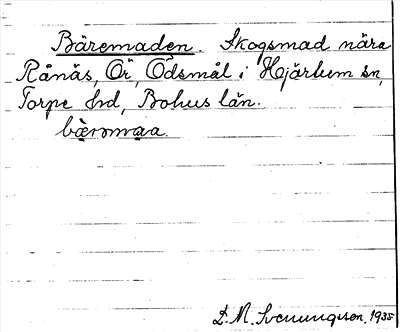 Bäremaden. Skogsmad nära
Rånäs, Ör, Ödsmål i Hjärtum sn,
Torpe hd, Bohus län.
bæ̀rəmaa.
S.M. Svenungson. 1935